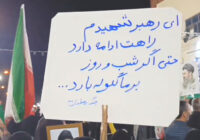 ای رهبر شهیدم
راهت ادامه دارد
حتی اگر شب و روز
بر ما گلوله بارد...